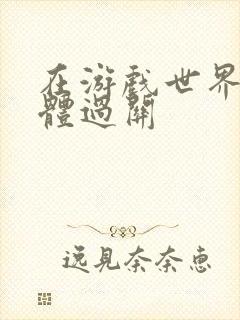 在游戲世界
體過關
逸見奈奈惠